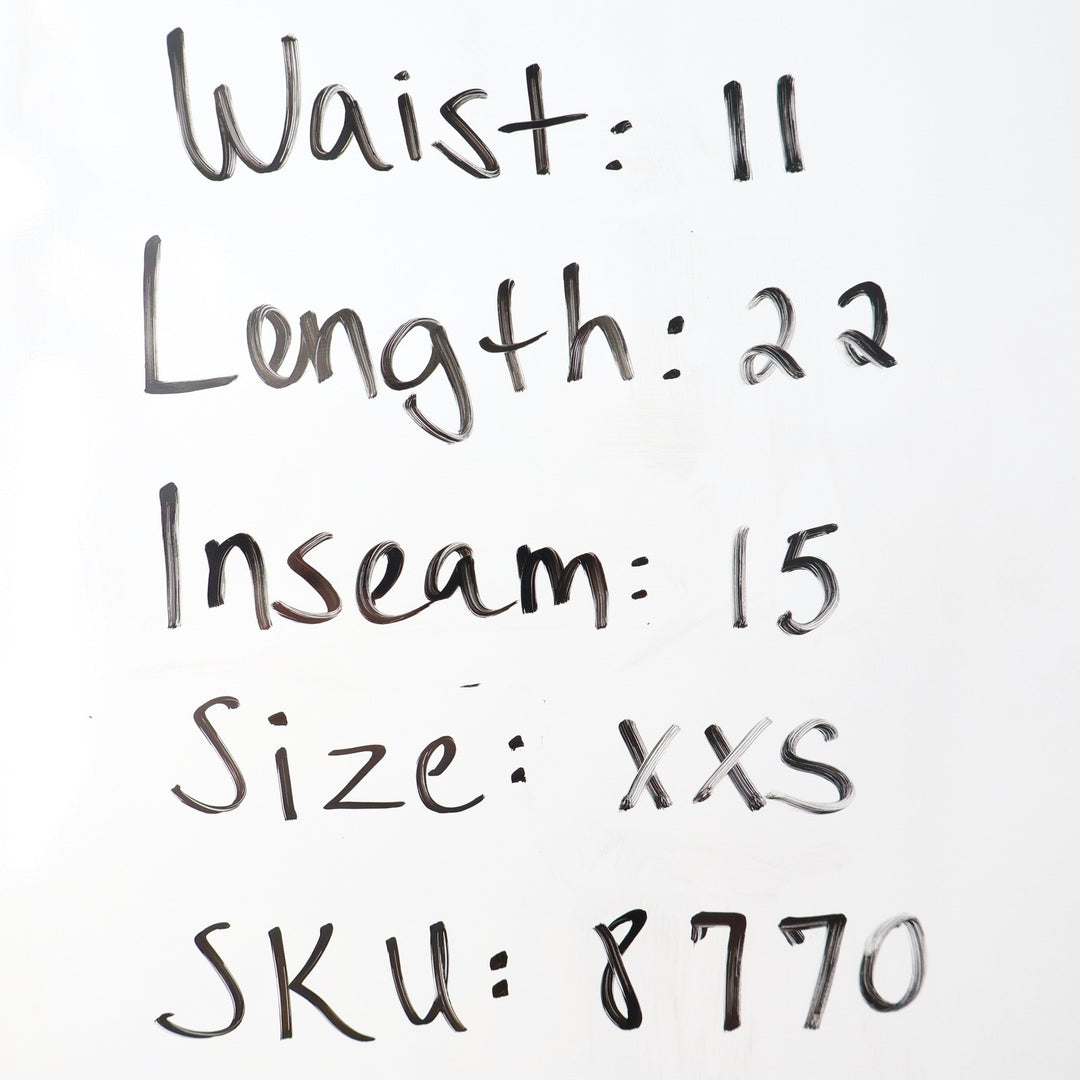 Waist: 11
Length: 22
Inseam: 15
Size: XXS
SKU: 8770